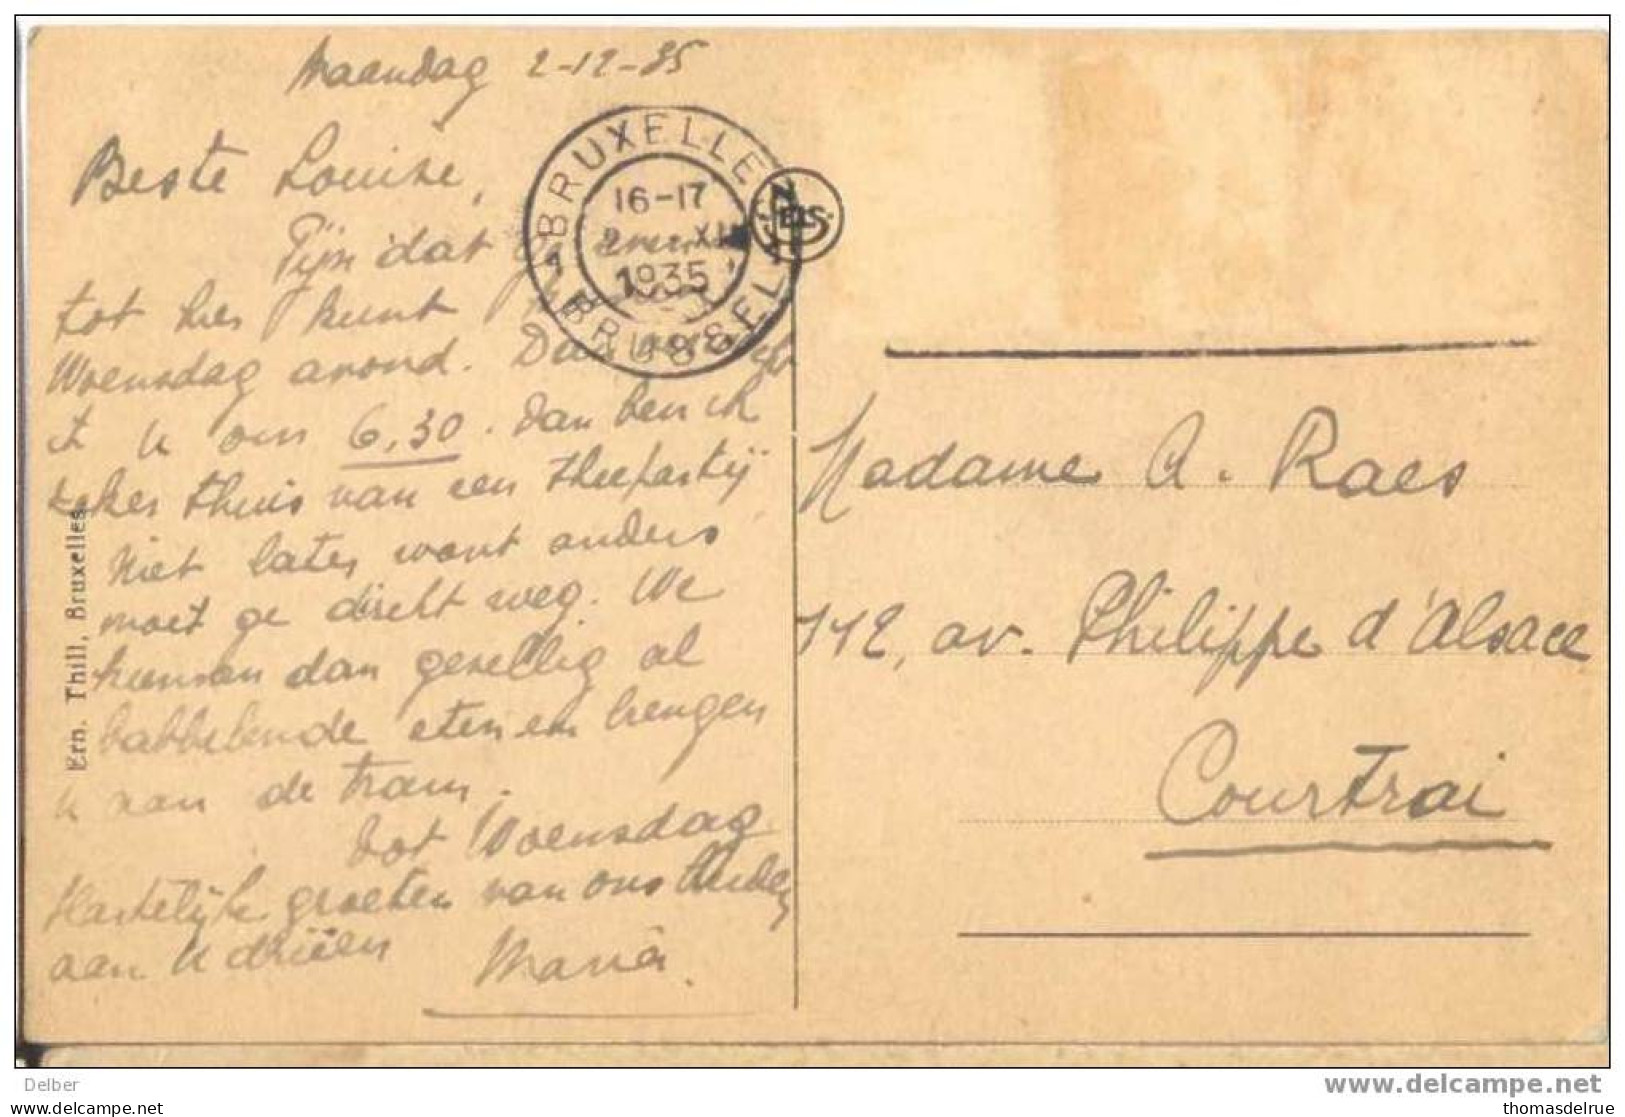 Maandag 2-12-35
Beste Louise,
Fijn dat ge
tot hier kunt
Woensdag avond. Dan
ik u om 6,30. Dan ben ik
zeker thuis van een theepartij
Niet later want anders
moet ge direkt weg. We
kunnen dan gezellig al
babbelende eten en brengen
u aan de tram.
Tot Woensdag
Hartelijke groeten van ons
aan u drieën
Maria
Ern. Thill, Bruxelles.
BRUXELLES
16-17
XII
1935
BRUSSEL
NELS
Madame A. Raes
112, av. Philippe d'Alsace
Courtrai
Delber
www.delcampe.net
collections
thomasdelrue